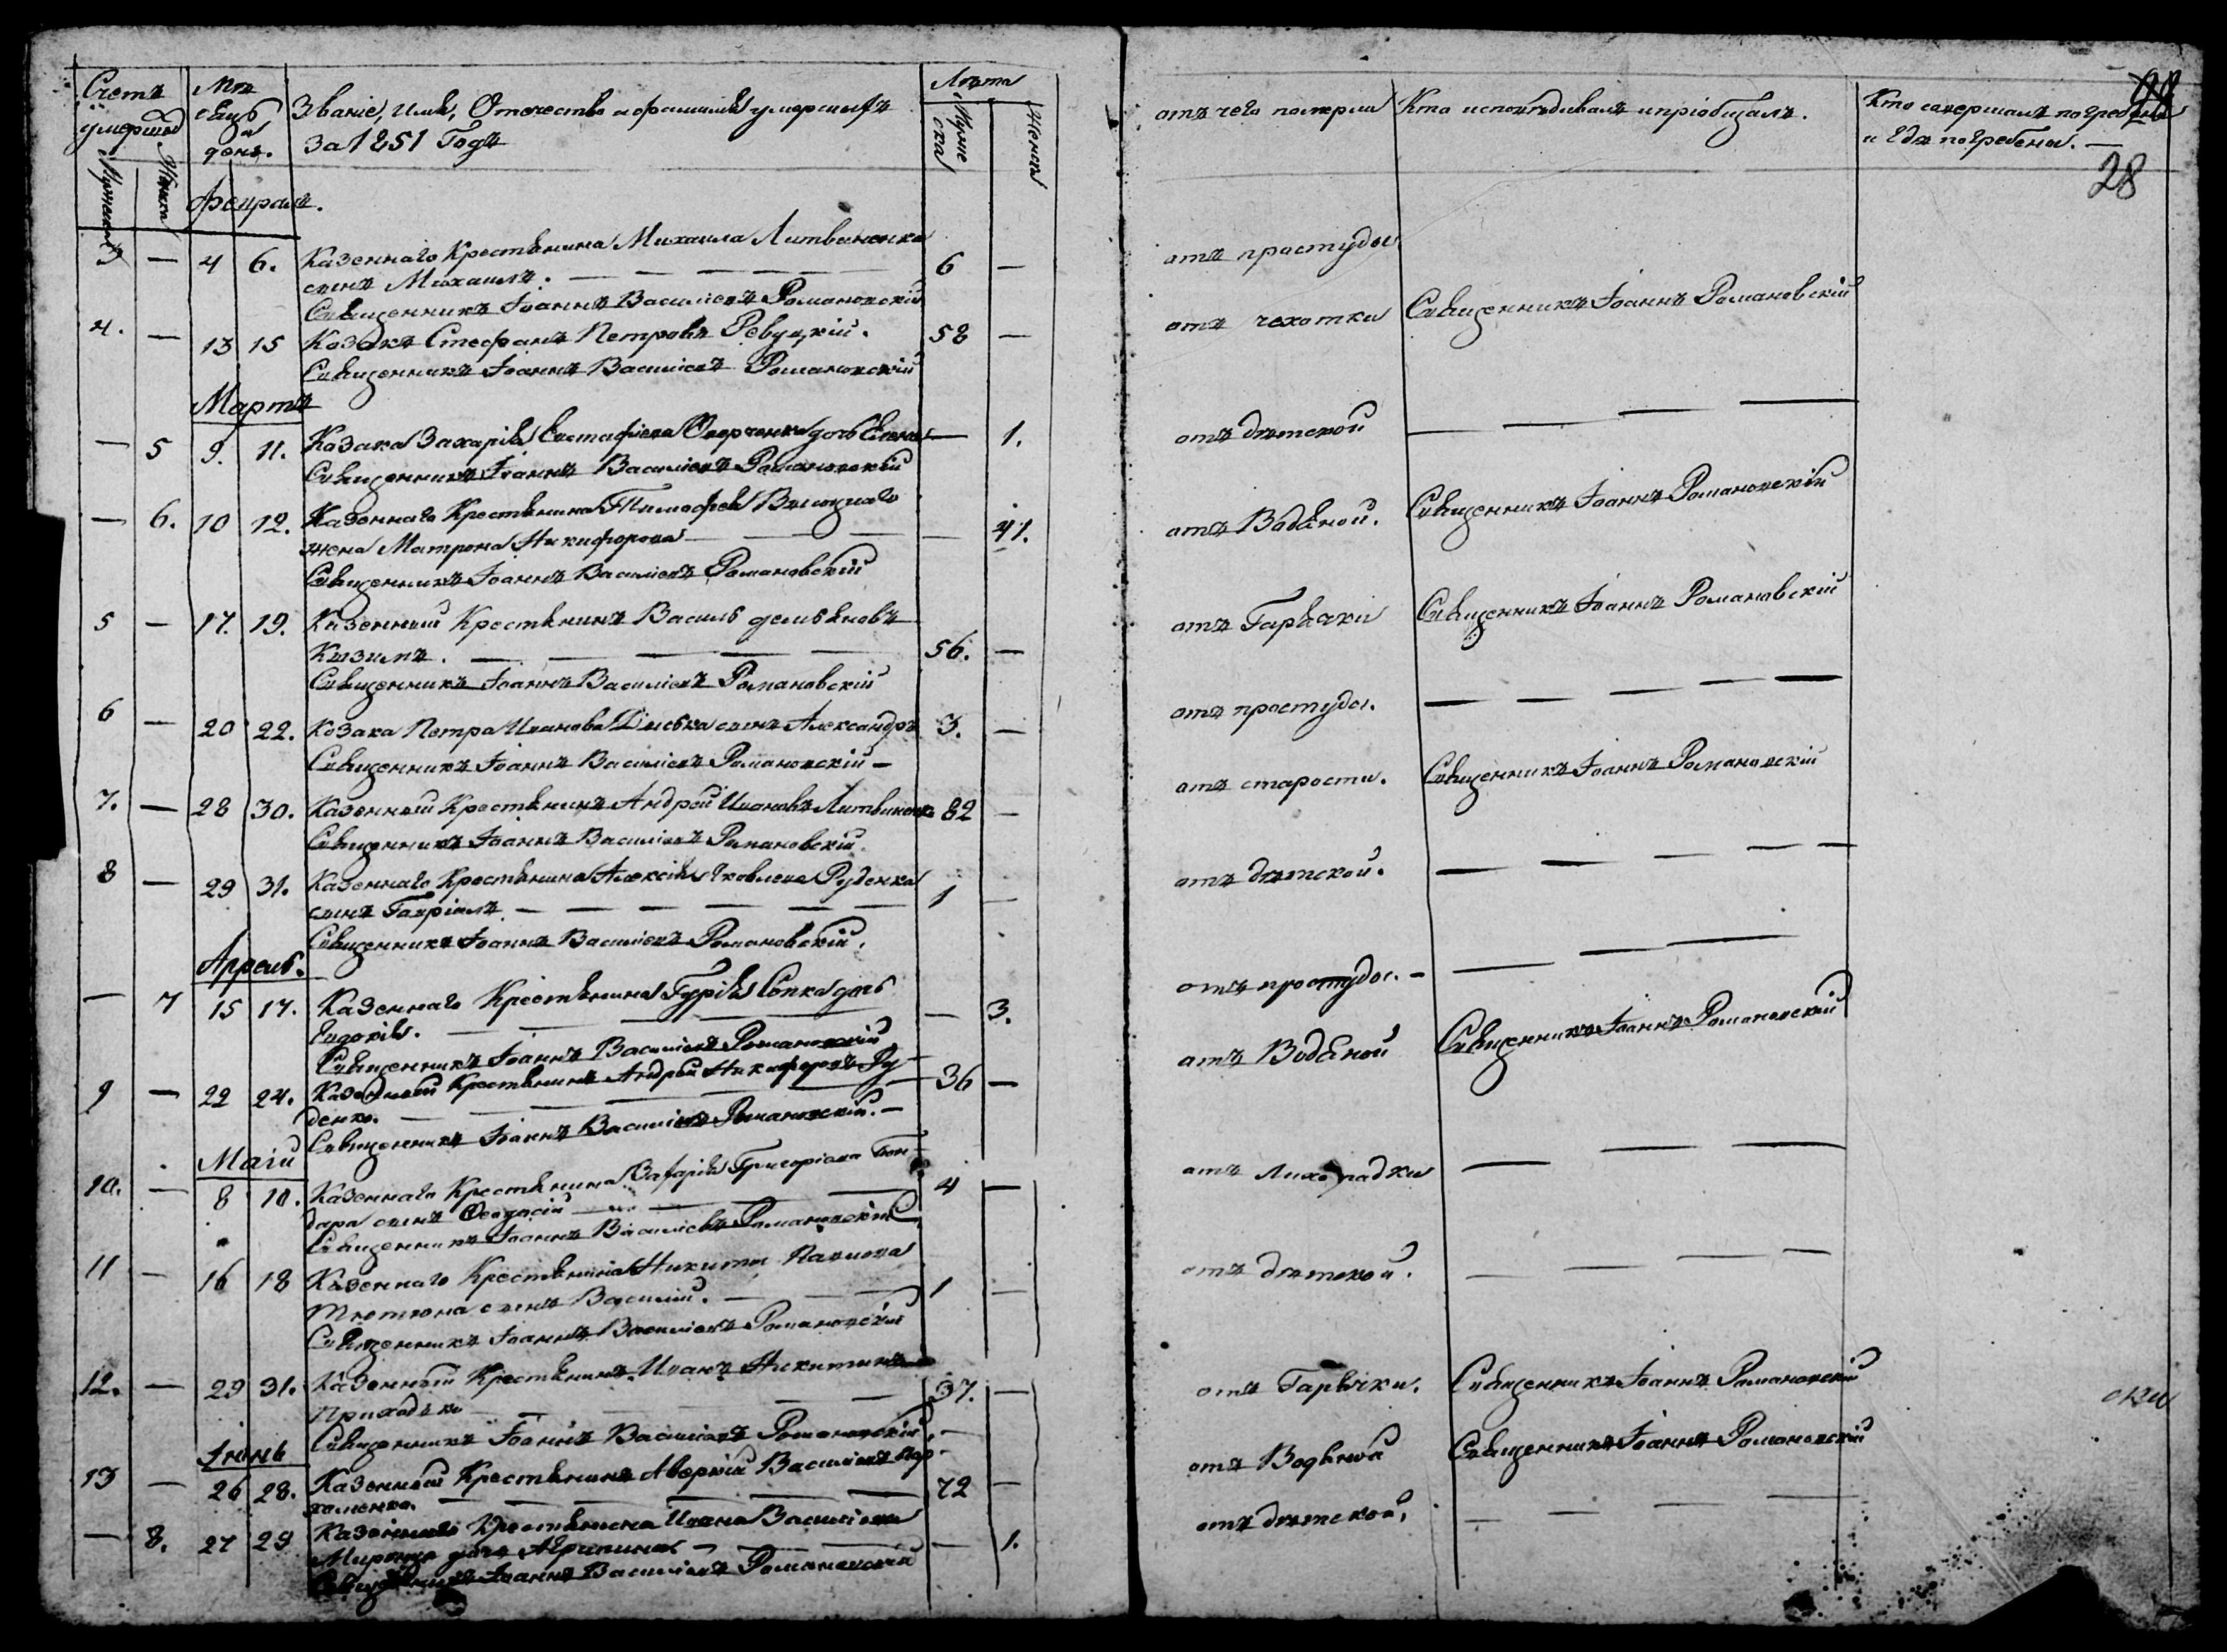 Счетъ умершихъ
Мѣсяцъ и день.
Званіе, имя, Отечество и фамилія умершихъ
За 1851 Годъ
Лѣта
Мужеска
Женска
Мужеска
Женска
отъ чего померли
Кто исповѣдывалъ и пріобщалъ.
Кто совершалъ погребеніе
и гдѣ погребены. —
28
Февраль.
3 — 4 6. Казеннаго Крестьянина Михаила Литвиненка
сынъ Михаилъ. — — — — — 6 — отъ простуды
Священникъ Іоаннъ Василіевъ Романовскій
4. — 13 15 Козакъ Стефанъ Петровъ Ревуцкій. 58 — отъ чехотки Священникъ Іоаннъ Романовскій
Священникъ Іоаннъ Василіевъ Романовскій
Мартъ
— 5 9. 11. Козака Захарія Евстафіева дочь Елена — 1. отъ дѣтской — — —
Священникъ Іоаннъ Василіевъ Романовскій
— 6. 10 12. Казеннаго Крестьянина Тимофея
жена Матрона Никифорова — — — — 41. отъ Водяной. Священникъ Іоаннъ Романовскій
Священникъ Іоаннъ Василіевъ Романовскій
5 — 17. 19. Казенный Крестьянинъ Василь демьяновъ
Кизимъ. — — — — 56. — отъ Гарячки Священникъ Іоаннъ Романовскій
Священникъ Іоаннъ Василіевъ Романовскій
6 — 20 22. Козака Петра Иванова сынъ Александръ 3. — отъ простуды. — — — — —
Священникъ Іоаннъ Василіевъ Романовскій —
7. — 28 30. Казенный Крестьянинъ Андрей Ивановъ Литвиненко 82 — отъ старости. Священникъ Іоаннъ Романовскій
Священникъ Іоаннъ Василіевъ Романовскій.
8 — 29 31. Казеннаго Крестьянина Алексія Яковлева Руденка
сынъ Гавріилъ. — — — — — — 1 — отъ дѣтской. — — — — —
Священникъ Іоаннъ Василіевъ Романовскій.
Апрель.
— 7 15 17. Казеннаго Крестьянина Гурія Сопка дочь
Евдокія. — — — — 3. отъ простуды. — — — —
Священникъ Іоаннъ Василіевъ Романовскій
9 — 22 24. Казенный Крестьянинъ Андрей Никифоровъ Ру-
денко. — — — 36 — отъ Водяной Священникъ Іоаннъ Романовскій
Священникъ Іоаннъ Василіевъ Романовскій. —
Маій
10. — 8 10. Казеннаго Крестьянина Захарія Григоріева Бон-
дара сынъ Феодосій — — — 4 — отъ Лихорадки — — —
Священникъ Іоаннъ Василіевъ Романовскій
11 — 16 18 Казеннаго Крестьянина Никиты Павлова
Тютюна сынъ Василій. — — — 1 — отъ дѣтской. — — — —
Священникъ Іоаннъ Василіевъ Романовскій
12. — 29 31. Казенный Крестьянинъ Иванъ Никитинъ
Приходько — — — — 37. — отъ Гарячки. Священникъ Іоаннъ Романовскій
Священникъ Іоаннъ Василіевъ Романовскій. —
Іюнь
13 — 26 28. Казенный Крестьянинъ Аверкій Василіевъ Пар-
хоменко. — — — — — 72 — отъ Водяной Священникъ Іоаннъ Романовскій
— 8. 27 29 Казеннаго Крестьянина Ивана Василіева
дочь Агрипина — — — — 1. отъ дѣтской. — — — —
Священникъ Іоаннъ Василіевъ Романовскій